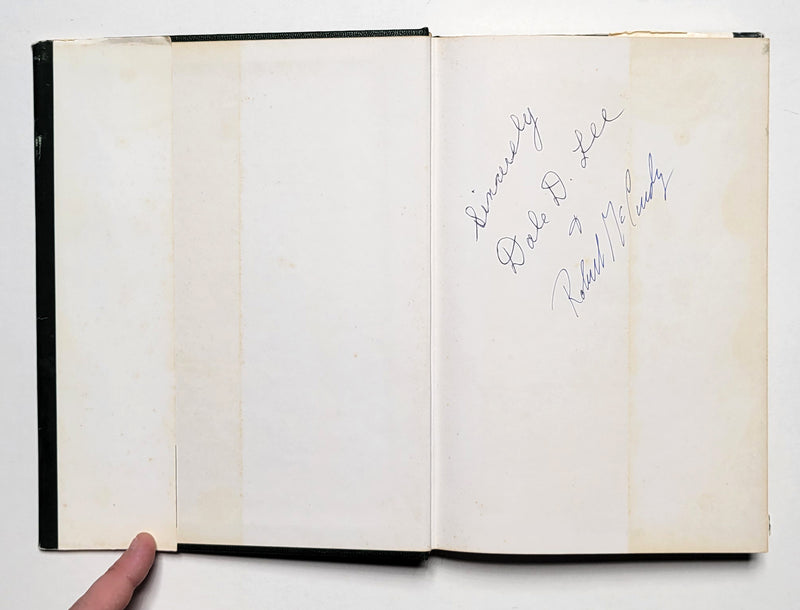 Sincerely
Dale D. Lee
&
Robert McCurdy